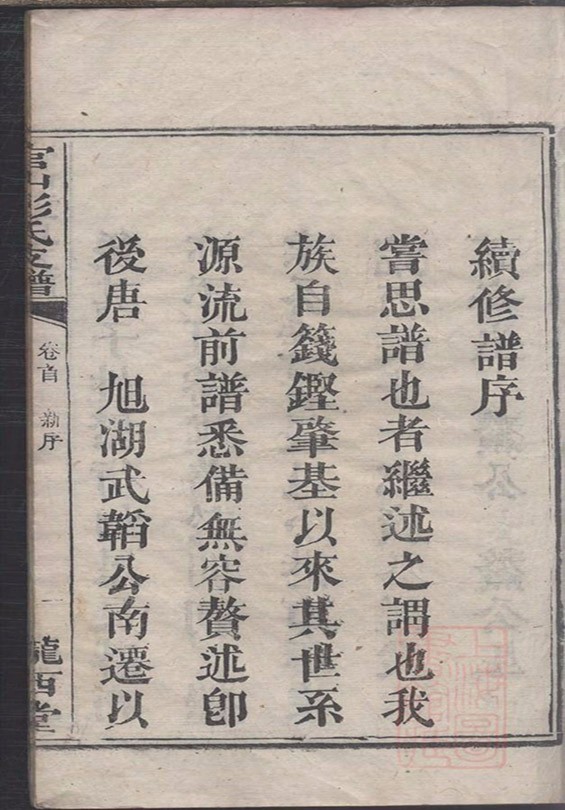 續修譜序
嘗思譜也者繼述之謂也我
族自籛鏗肇基以來其世系
源流前譜悉備無容贅述即
後唐 旭湖武韜公南遷以
官山彭氏支譜
卷首 新序
一
隴西堂